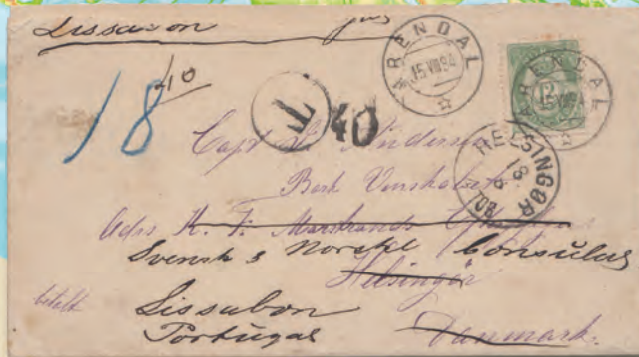 Lissabon
ARENDAL
15 VIII 94
ARENDAL
15 VIII 94
18
40
T
40
Capt
HELSINGØR
18 8
Bark Venskabet
Adr. K. F. Marstrands
Svensk & Norske Consulat
Helsingör
betalt Lissabon
Portugal Danmark.